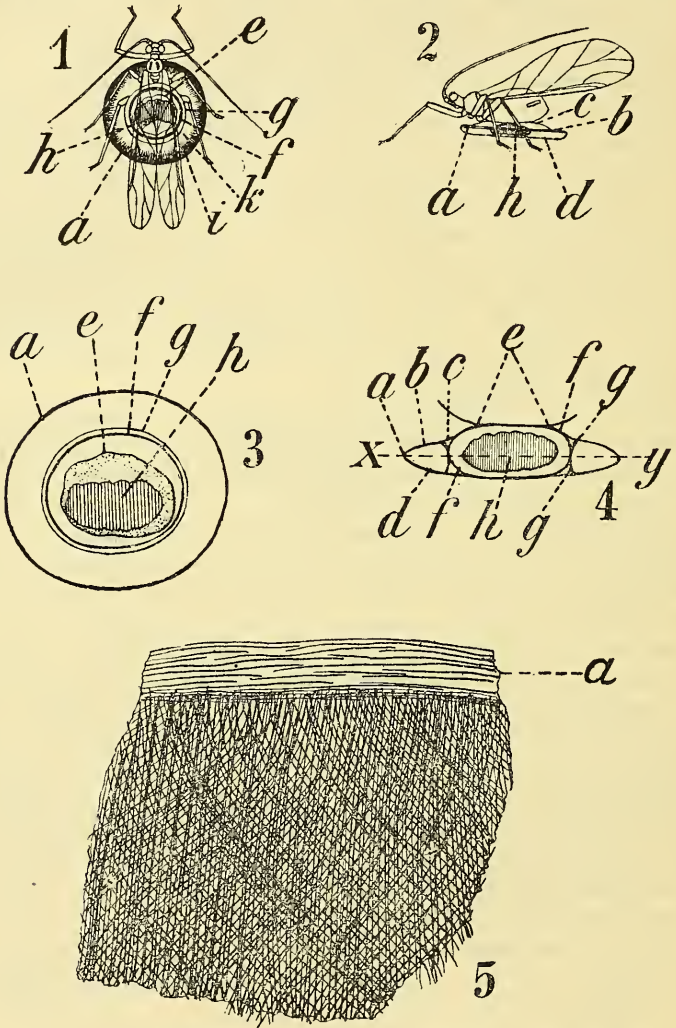 1
e
g
h
f
a
i
k
2
c
b
a h d
a e f g h
3
a b c e f g
x y
d f h g
4
a
5